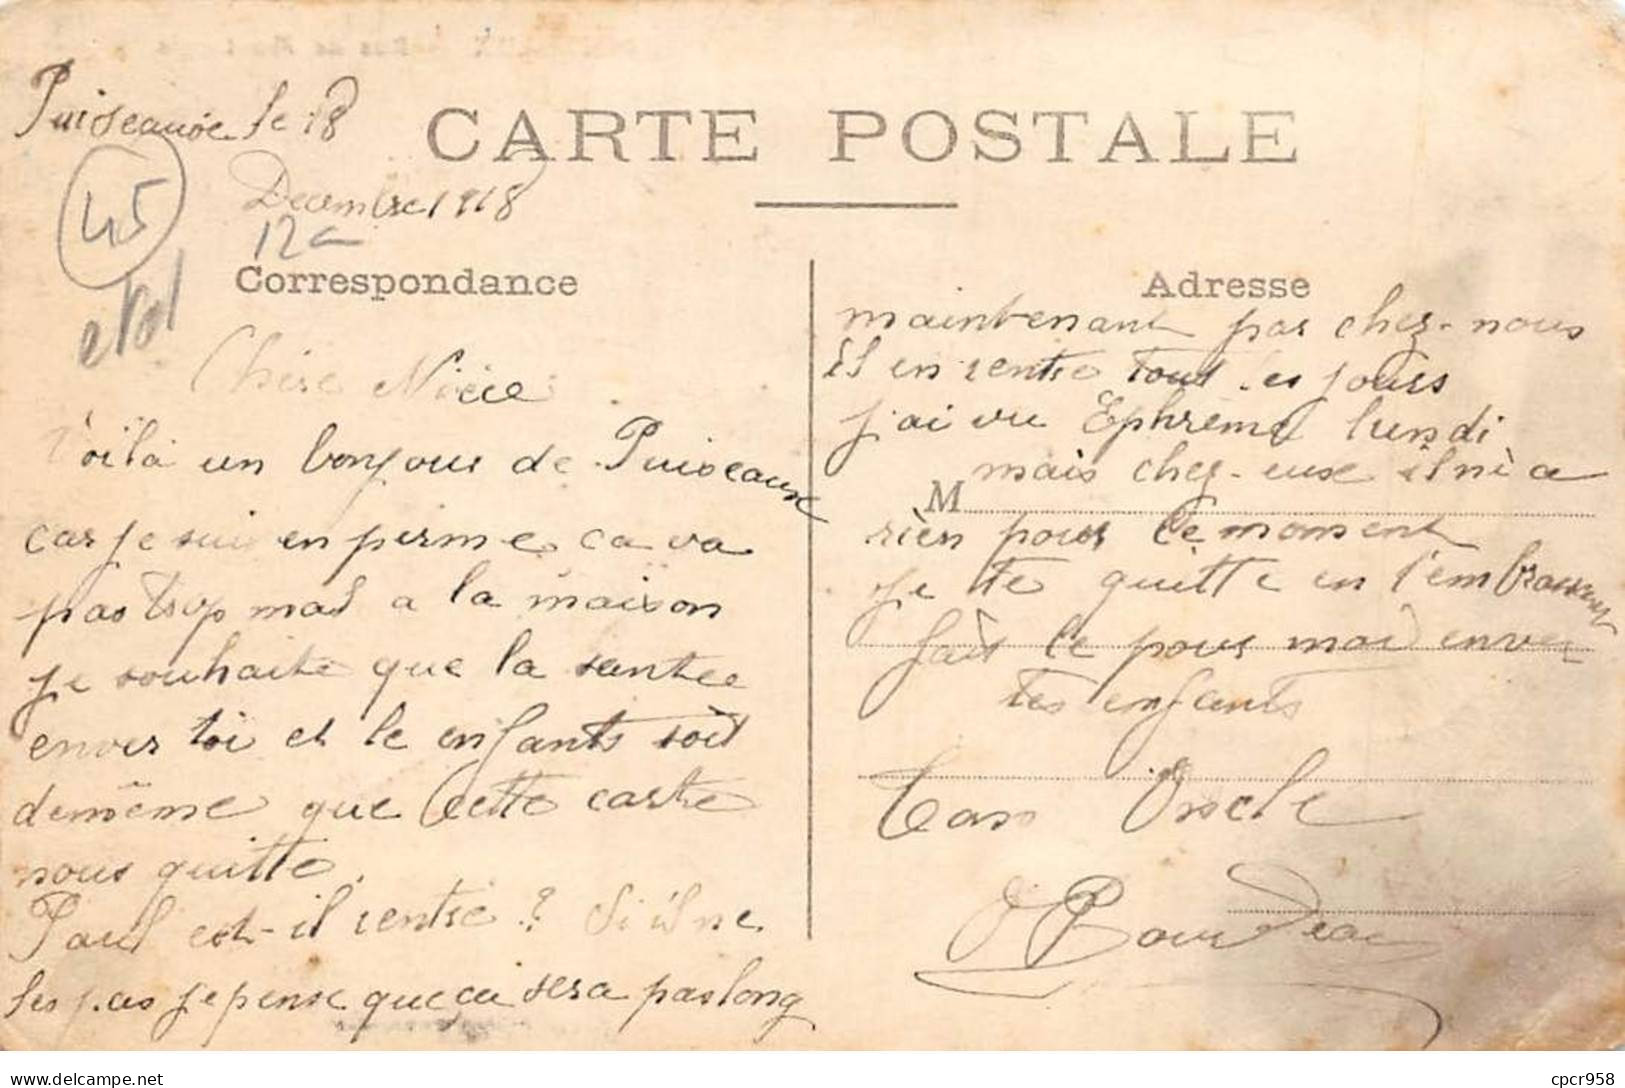 Puiseaux le 18
CARTE POSTALE
Decembre 1918
45
12
Correspondance
Adresse
Chère Nièce
Voilà un bonjour de Puiseaux
car je sui en perme ca va
pas trop mas a la maison
je souhaite que la santee
enver toi et le enfants soit
demême que Cette carte
nous quitte.
Paul est-il rentré? Si il ne
les pas je pense que ca sera pas long
maintenant par chez-nous
il en rentre tout les jours
j'ai vu Ephreme lundi
mais chez-euse il nè a
M
rien pour le moment
je te quitte en t'embrassent
fait le pour moi enver
tes enfants
Ton Oncle
Bourdeau
cpcr958